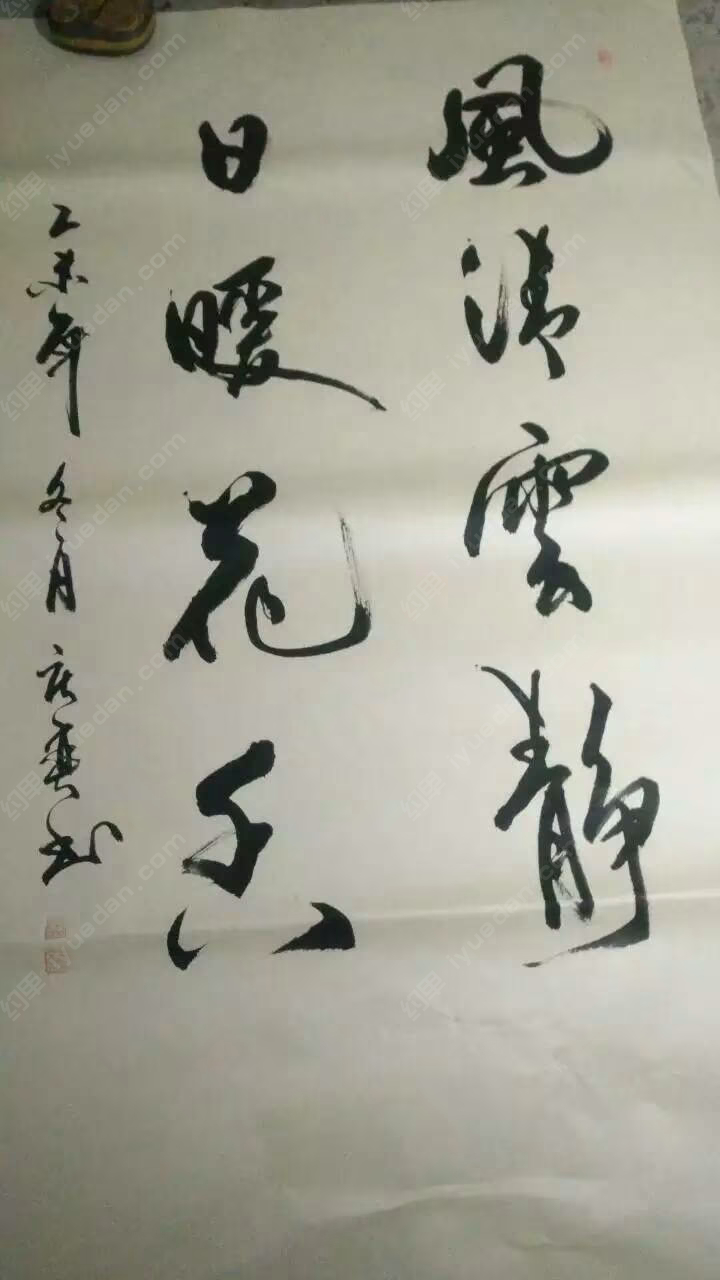 風清雲靜
日暖花香
乙未年 冬月
书
约单 iyuedan.com